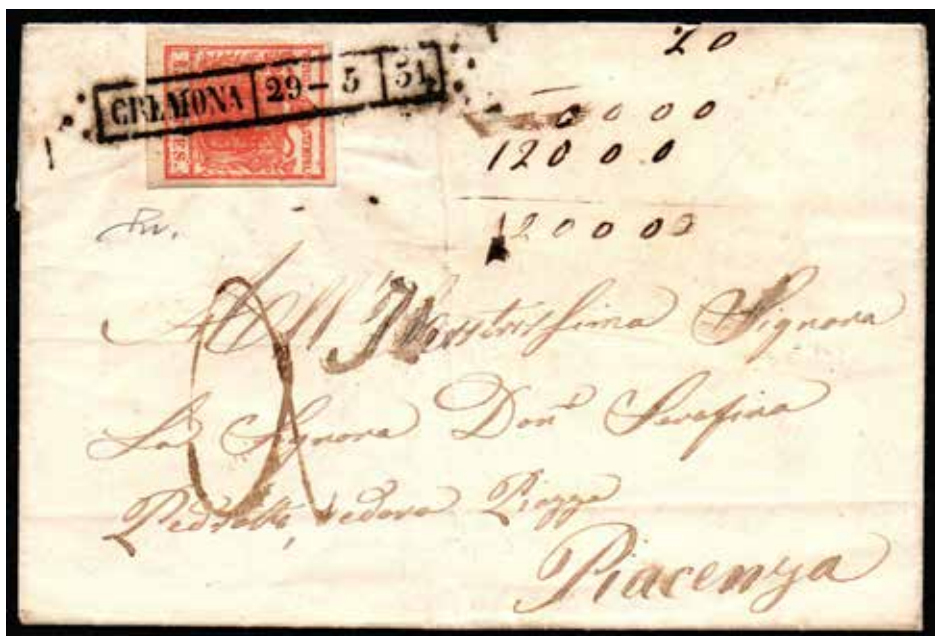 CREMONA 29 - 5 51
20
0000
120000
120000
All Illustrissima Signora
La Signora Donᵃ Serafina
vedova Piazza
Piacenza